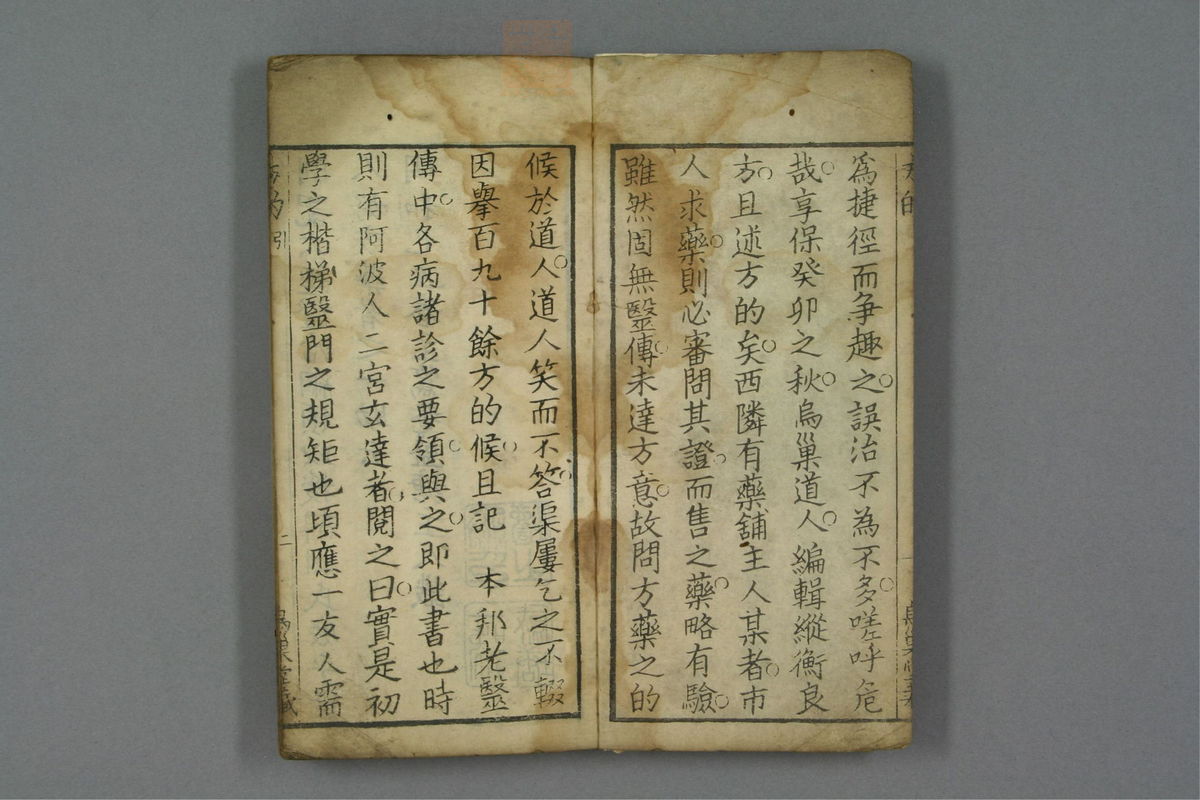 為捷徑而争趣之誤治不為不多嗟呼危
哉享保癸卯之秋烏巢道人編輯縱衡良
方且述方的矣西隣有藥舖主人某者市
人求藥則必審問其證而售之藥略有驗
雖然固無毉傳未達方意故問方藥之的
候於道人道人笑而不答渠屢乞之不輟
因擧百九十餘方的候且記 本邦老毉
傳中各病諸診之要領與之即此書也時
則有阿波人二宮玄達者閱之曰實是初
學之楷梯毉門之規矩也頃應一友人需
方的 引
二